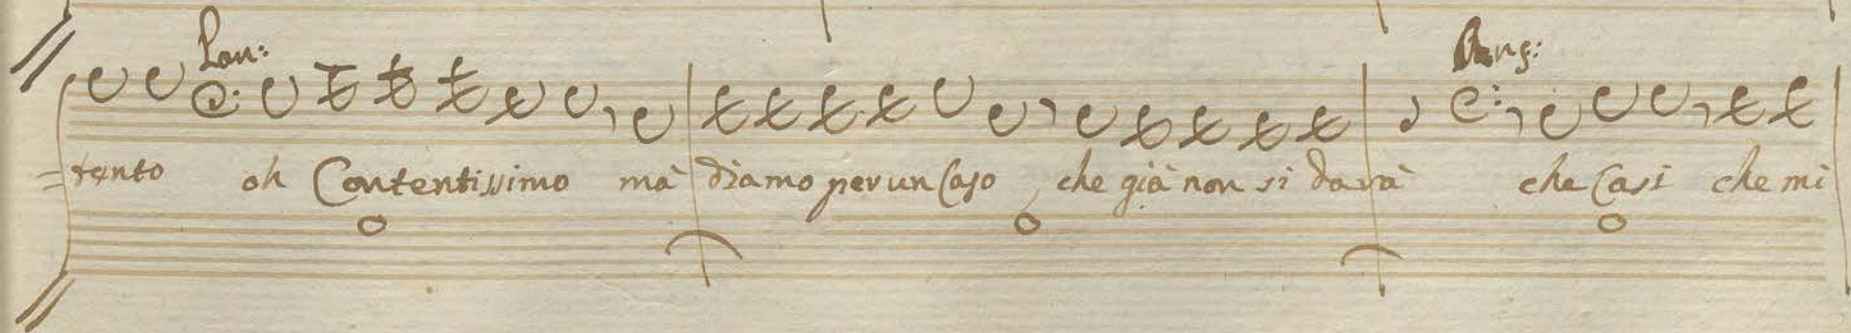 Lon: Ang:
=tento oh Contentissimo mà diamo per un Caso che già non si darà che Casi che mi